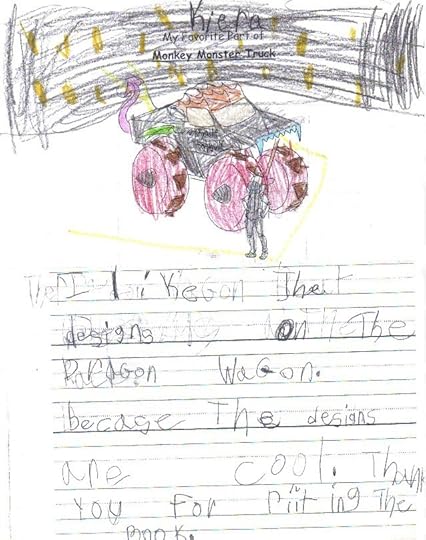 Kiera
My Favorite Part of
Monkey Monster Truck
I like That
designs on The
DRaGon WaGon.
becage The designs
are cool. Thank
You For riiting The
Book.